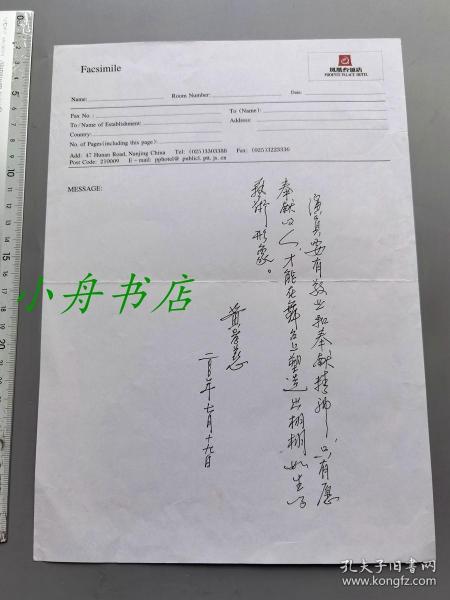 Facsimile
凤凰台饭店
PHOENIX PALACE HOTEL
Name:
Room Number:
Date:
Fax No.:
To (Name):
To/Name of Establishment:
Address:
Country:
No. of Pages(including this page):
Add: 47 Hunan Road, Nanjing China Tel: (025)3303388 Fax: (025)3223336
Post Code: 210009 E-mail: pphotel@ public1. ptt. js. cn
MESSAGE:
演员要有敬业和奉献精神，只有愿
奉献的人，才能在舞台上塑造出栩栩如生的
藝術形象。
二〇〇二年七月十九日
小舟书店
孔夫子旧书网
www.kongfz.com